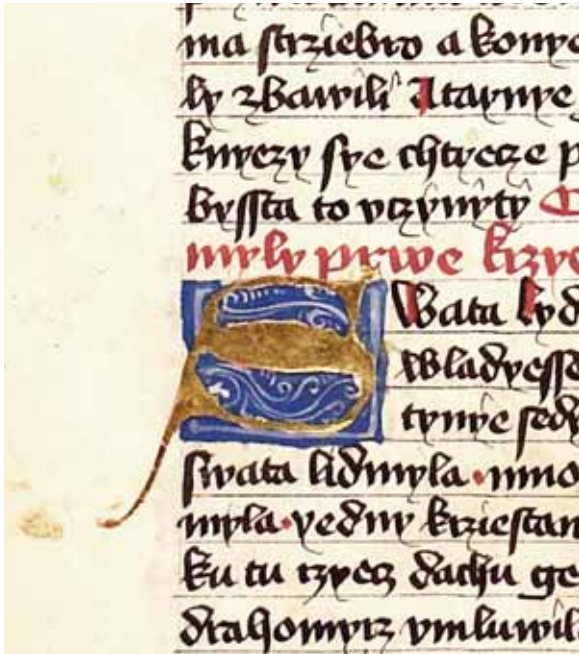 ma ſtrziebro a konye
ly zbawili A taynye
knyezy ſye chtyecze p
byſſta to vczynyty C
myly prwe krzye
S Wata lyd
Wladyeſſe
tynye ſedy
ſwata lidmyla · mno
myla · yedny krzieſtan
ku tu rzyecz dachu ge
drahomyrz vmluwil